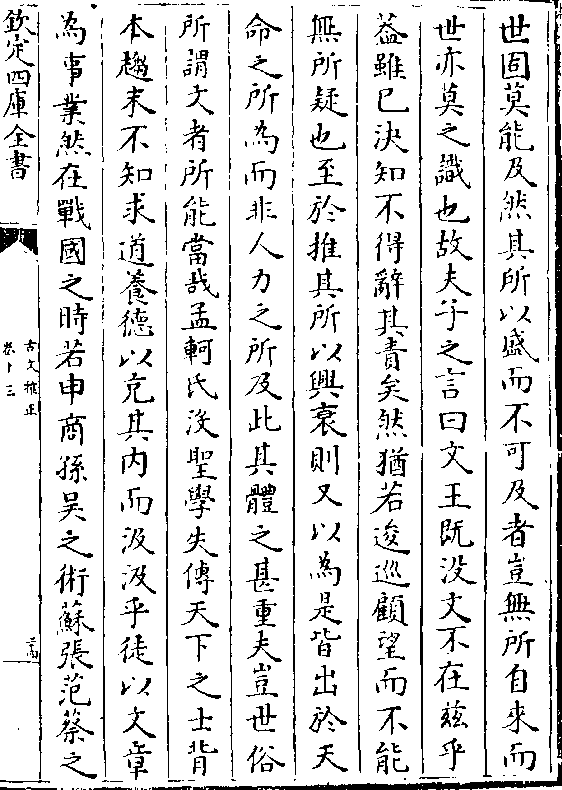 世固莫能及然其所以盛而不可及者豈無所自來而
世亦莫之識也故夫子之言曰文王既没文不在兹乎
葢雖已決知不得辭其責矣然猶若逡巡顧望而不能
無所疑也至於推其所以興衰則又以為是皆出於天
命之所為而非人力之所及此其體之甚重夫豈世俗
所謂文者所能當哉孟軻氏没聖學失傳天下之士背
本趨末不知求道養德以充其内而汲汲乎徒以文章
為事業然在戰國之時若申商孫吴之術蘇張范蔡之
欽定四庫全書
古文雅正
卷十三